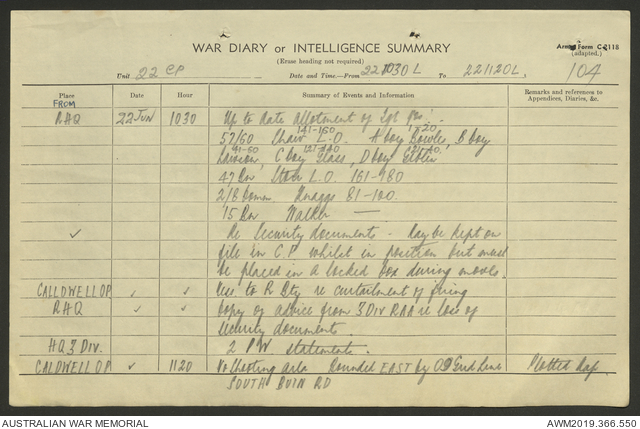 WAR DIARY or INTELLIGENCE SUMMARY
(Erase heading not required)
Army Form C 2118
(adapted.)
Unit 22 CP Date and Time—From 221030L To 221120L. 104
Place Date Hour Summary of Events and Information Remarks and references to Appendices, Diaries, &c.
FROM
RHQ 22 JUN 1030 Up to date allotment of
141-160 1-20
57/60 L.O. A boy Bowles, B boy
41-60 121-140 21-40
C boy Glass, D boy
47 Bn L.O. 161-180
2/8 Knaggs 81-100
15 Bn Walker —
✓ Re Security documents - may be kept on
file in C.P. whilst in position but must
be placed in a locked box during moves.
CALLDWELL OP ✓ ✓ to R Bty re curtailment of firing
RHQ ✓ ✓ Copy of advice from 3 Div RAA re loss of
security documents.
HQ 3 Div. 2 P.W. statements.
CALDWELL OP ✓ 1120 No shooting area bounded EAST by Grid Line Plotted
SOUTH BUIN RD
AUSTRALIAN WAR MEMORIAL AWM2019.366.550